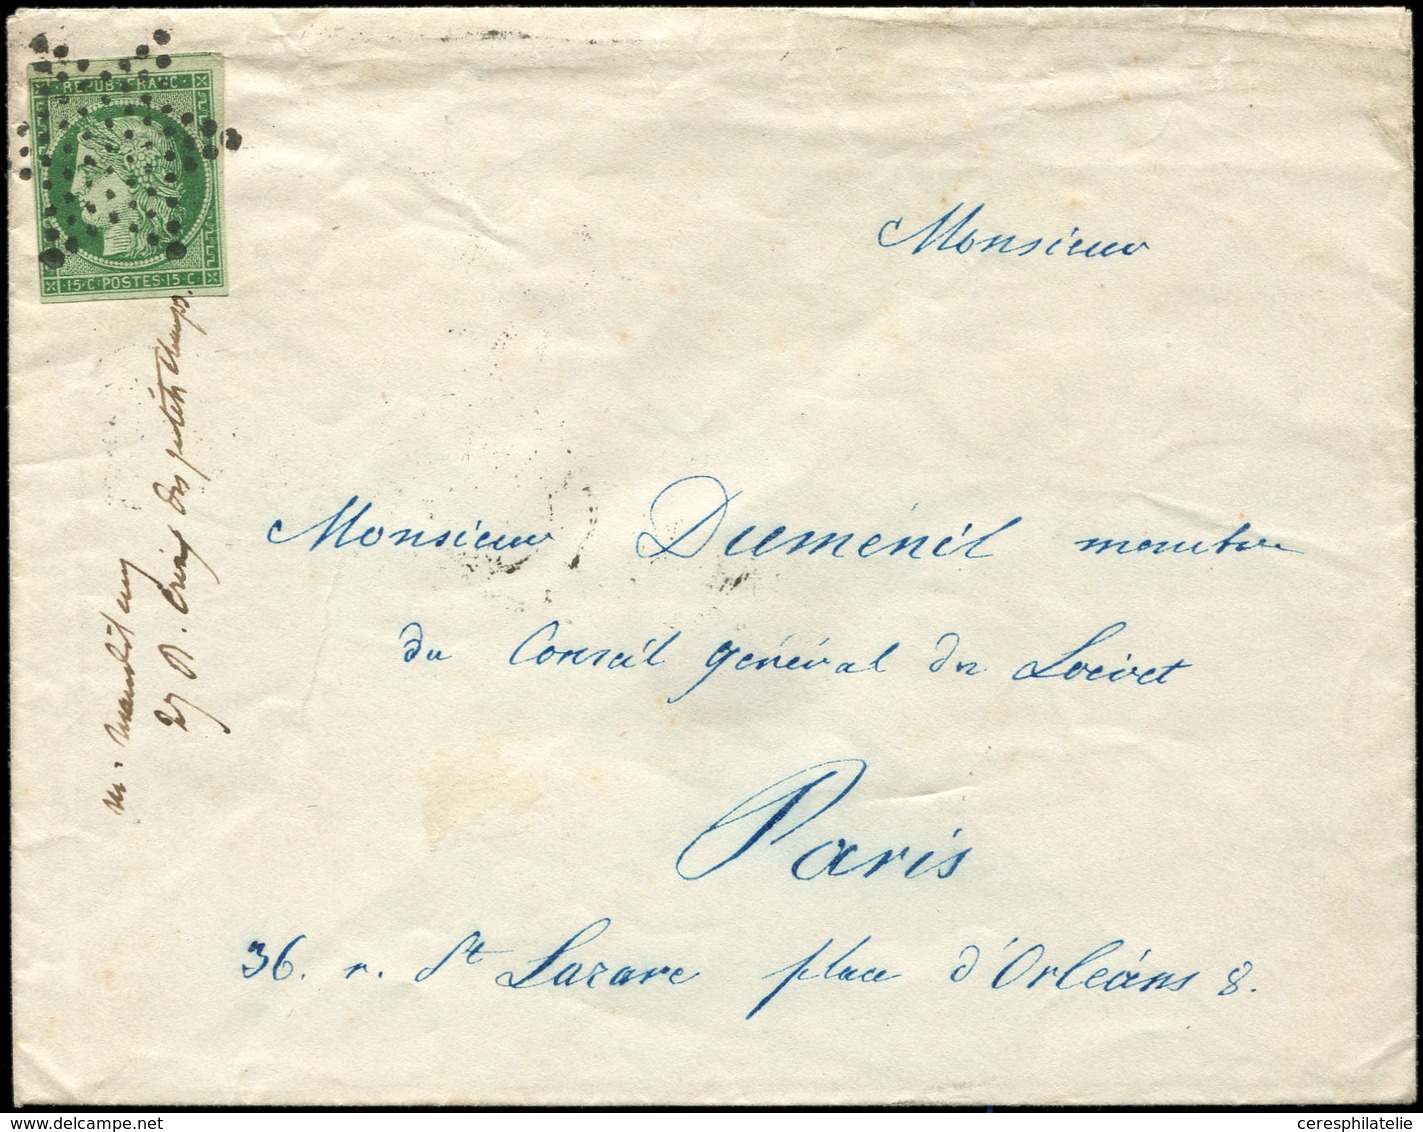 REPUB. FRANC.
15 C. POSTES. 15 C.
Monsieur
Monsieur Duménil membre
du Conseil général du Loiret
Paris
36. r. St Lazare place d'Orléans 8.
27 R. Croix des petits Champs.
ceresphilatelie